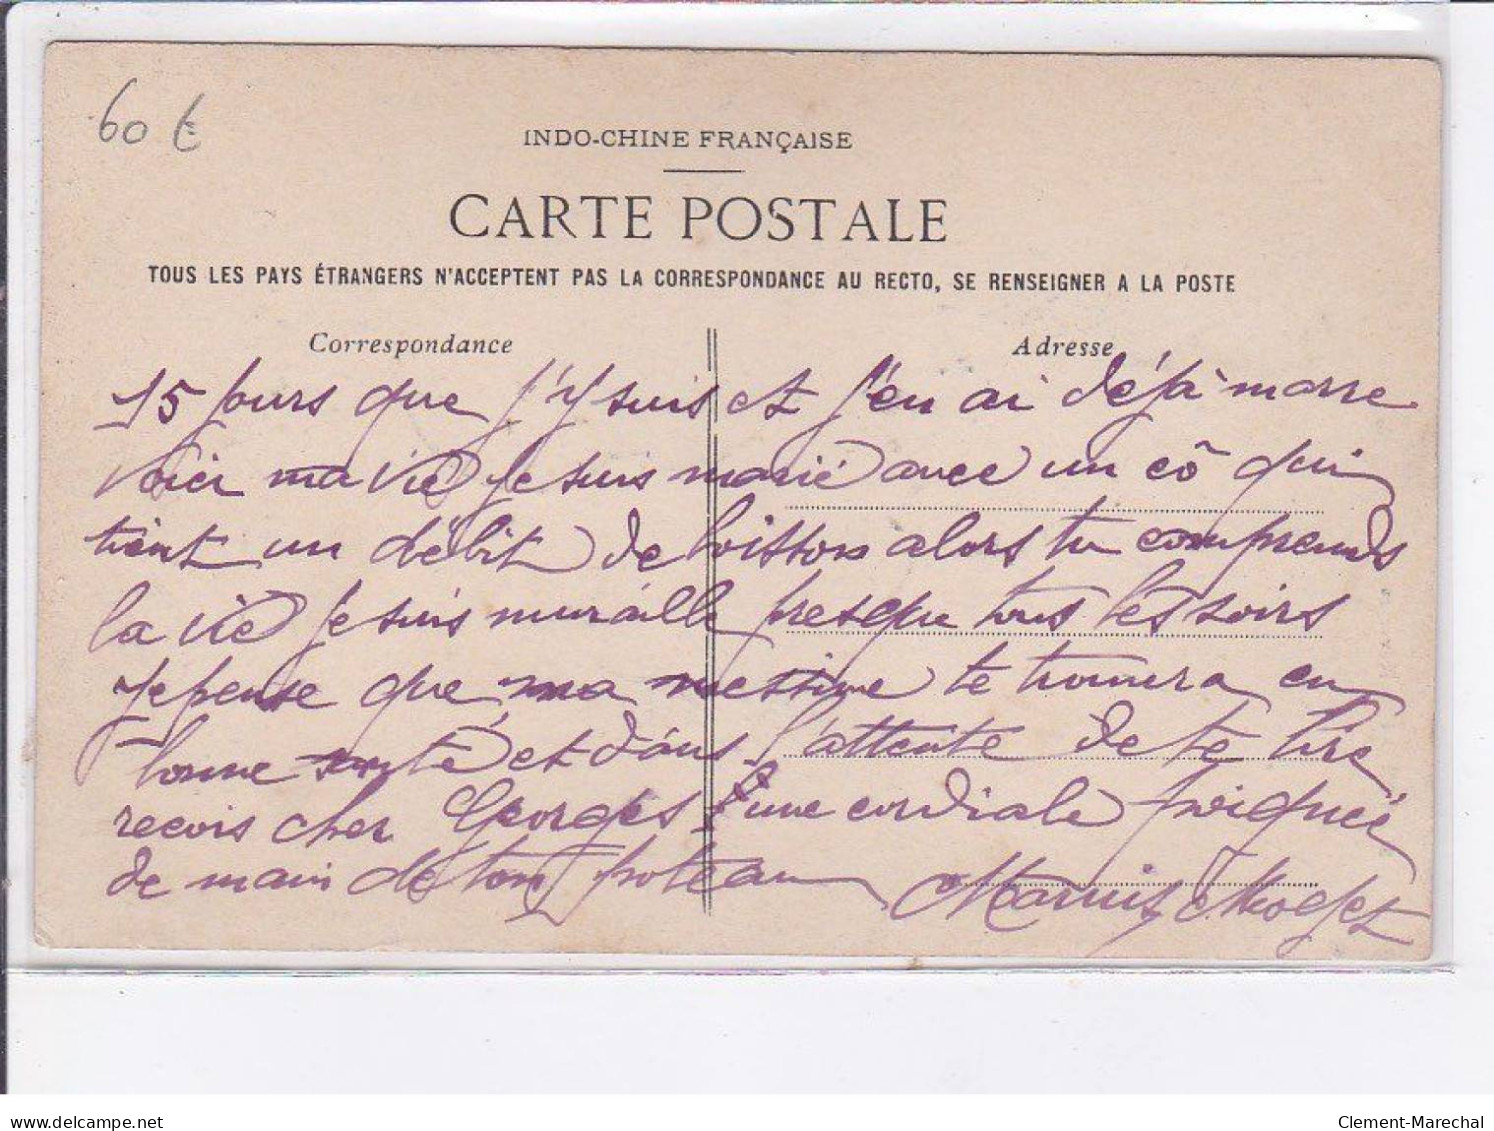 60 €
INDO-CHINE FRANÇAISE
CARTE POSTALE
TOUS LES PAYS ÉTRANGERS N'ACCEPTENT PAS LA CORRESPONDANCE AU RECTO, SE RENSEIGNER A LA POSTE
Correspondance Adresse
15 jours que j'y suis et j'en ai déjà marre
voici ma vie je suis marié avec un cô qui
tient un débit de boisson alors tu comprends
la vie je suis muraille presque tous les soirs
je pense que ma te trouvera en
bonne santé et dans l'attente de te lire
recois cher Georges une cordiale poignée
de main de ton poteau
delcampe.net Clement-Marechal